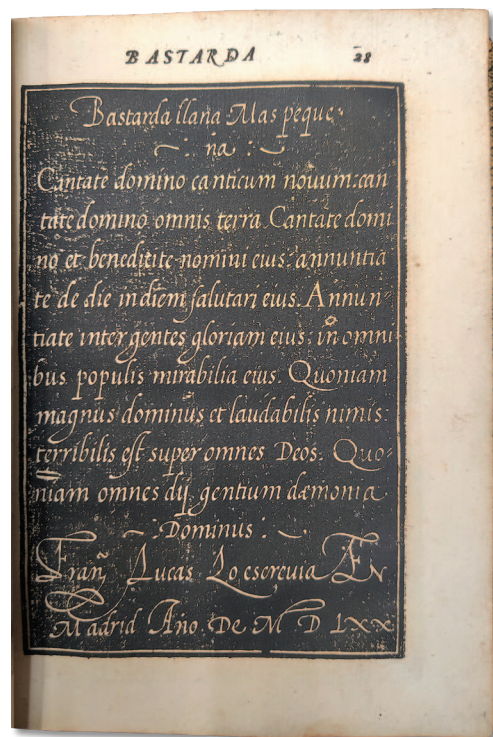 BASTARDA 28
Bastarda llana Mas peque-
na
Cantate domino canticum novum: can
tate domino omnis terra Cantate domi
no et benedicite nomini eius: annuntia
te de die in diem salutari eius. Annun-
tiate inter gentes gloriam eius, in omni-
bus populis mirabilia eius. Quoniam
magnus dominus et laudabilis nimis
terribilis est super omnes Deos. Quo-
niam omnes dij gentium dæmonia
Dominus.
Franco Lucas Lo escrevia En
Madrid Año. De M D LXX